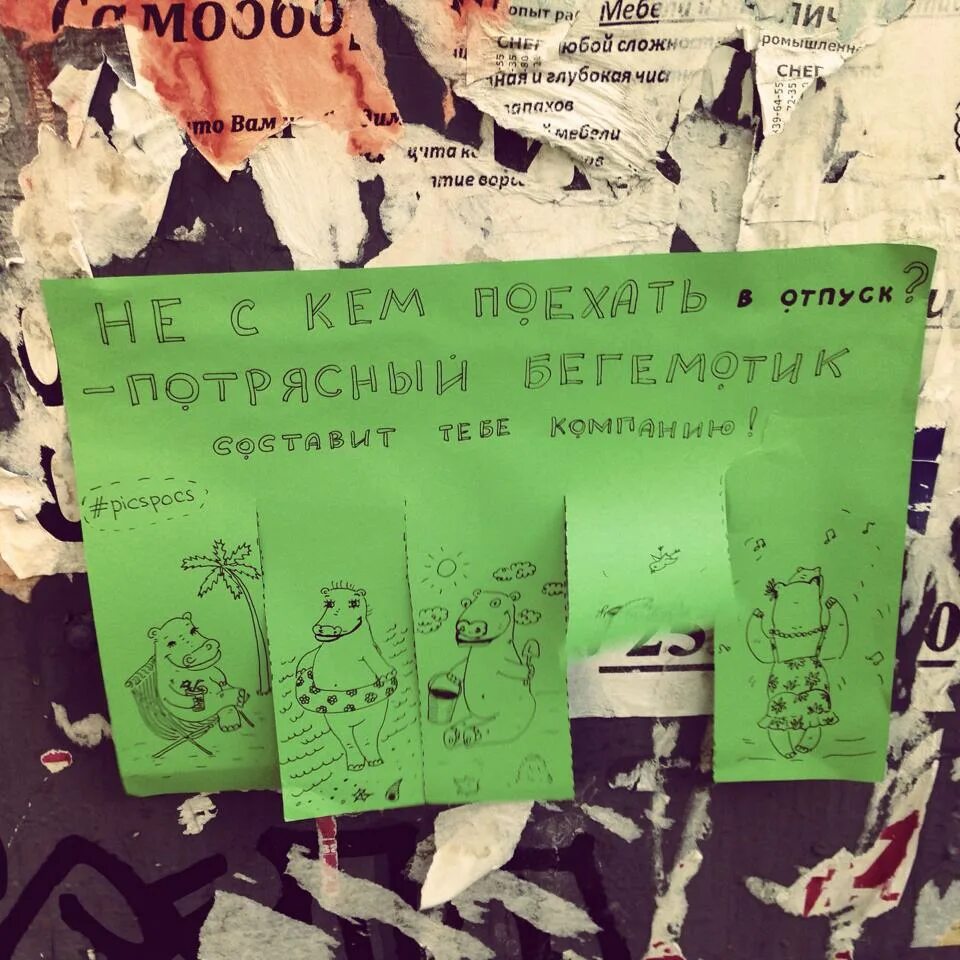 Самообо
опыт ра Мебе
СНЕГ любой сложнос
ная и глубокая чис
запахов
мебели
что Вам
ромышленн
СНЕГ
39-64-55
72-35
НЕ С КЕМ ПОЕХАТЬ В ОТПУСК?
-ПОТРЯСНЫЙ БЕГЕМОТИК
СОСТАВИТ ТЕБЕ КОМПАНИЮ!
#picspocs